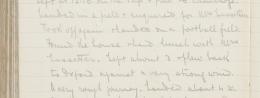 left at 12.10 in the
landed in a field & enquired for Mrs
Took off again & landed on a football field.
Found the house & had lunch with Mrs
Left about 3 & flew back
to Oxford against a very strong wind.
A very rough journey. Landed about 4